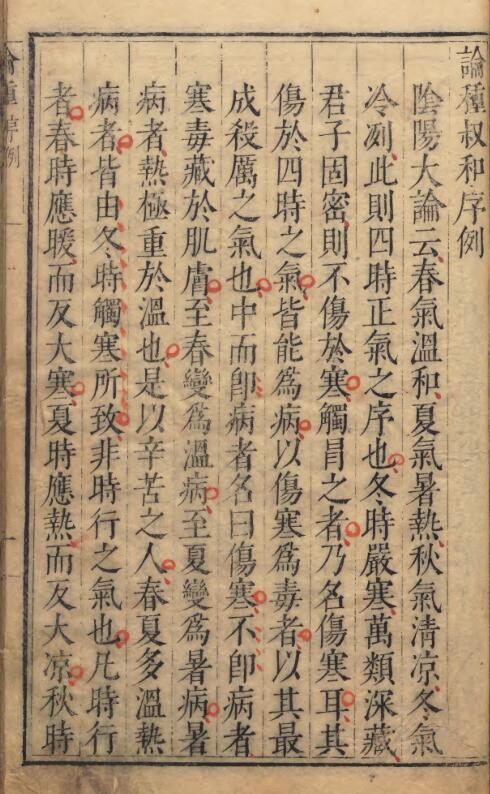 論種叔和序例
陰陽大論云春氣溫和夏氣暑熱秋氣清凉冬氣
冷冽此則四時正氣之序也冬時嚴寒萬類深藏
君子固密則不傷於寒觸冒之者乃名傷寒耳其
傷於四時之氣皆能爲病以傷寒爲毒者以其最
成殺厲之氣也中而卽病者名曰傷寒不卽病者
寒毒藏於肌膚至春變爲溫病至夏變爲暑病暑
病者熱極重於溫也是以辛苦之人春夏多溫熱
病者皆由冬時觸寒所致非時行之氣也凡時行
者春時應暖而反大寒夏時應熱而反大凉秋時